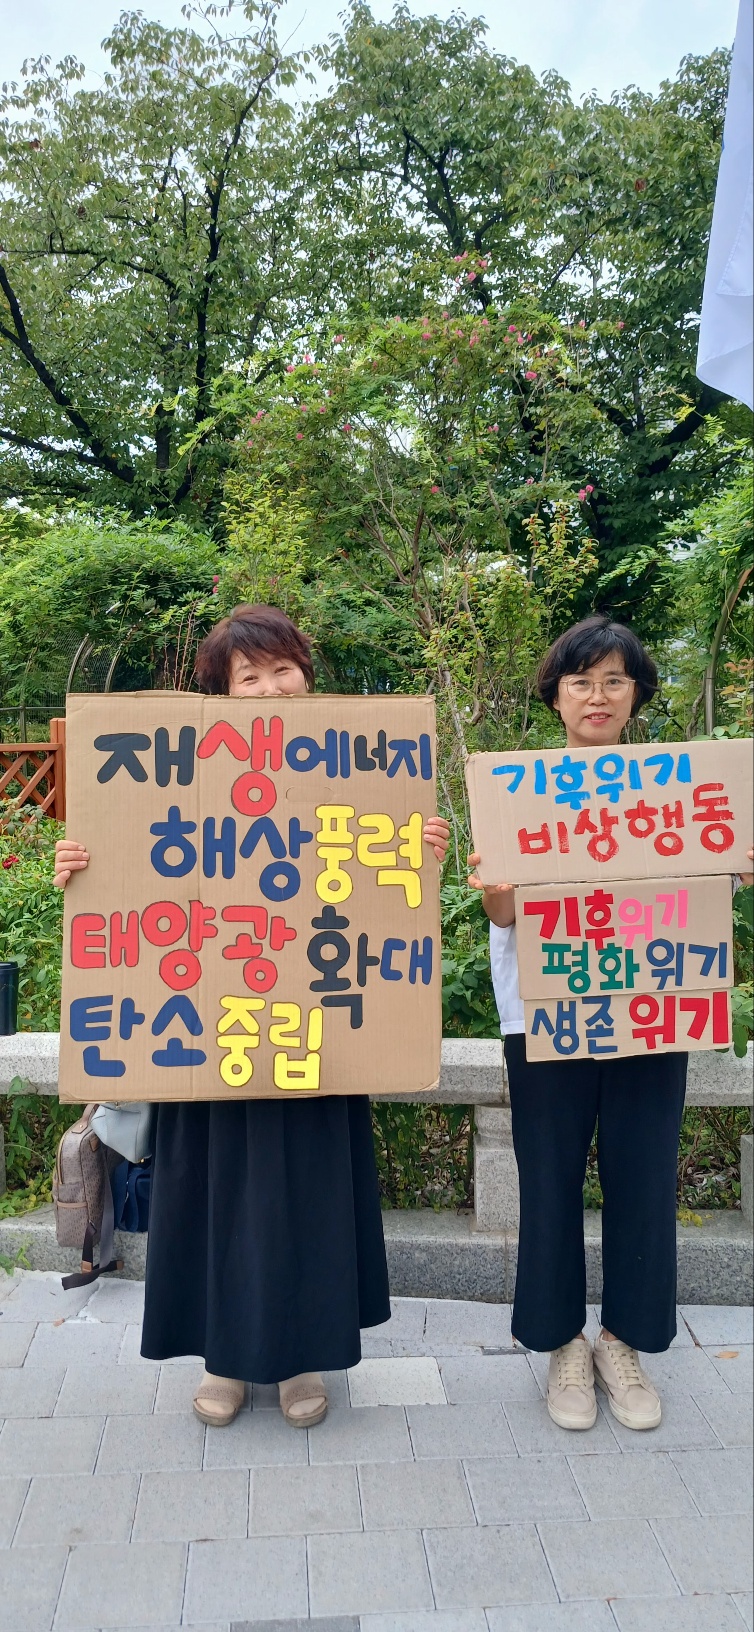 재생에너지
해상풍력
태양광 확대
탄소중립
기후위기
비상행동
기후위기
평화위기
생존위기